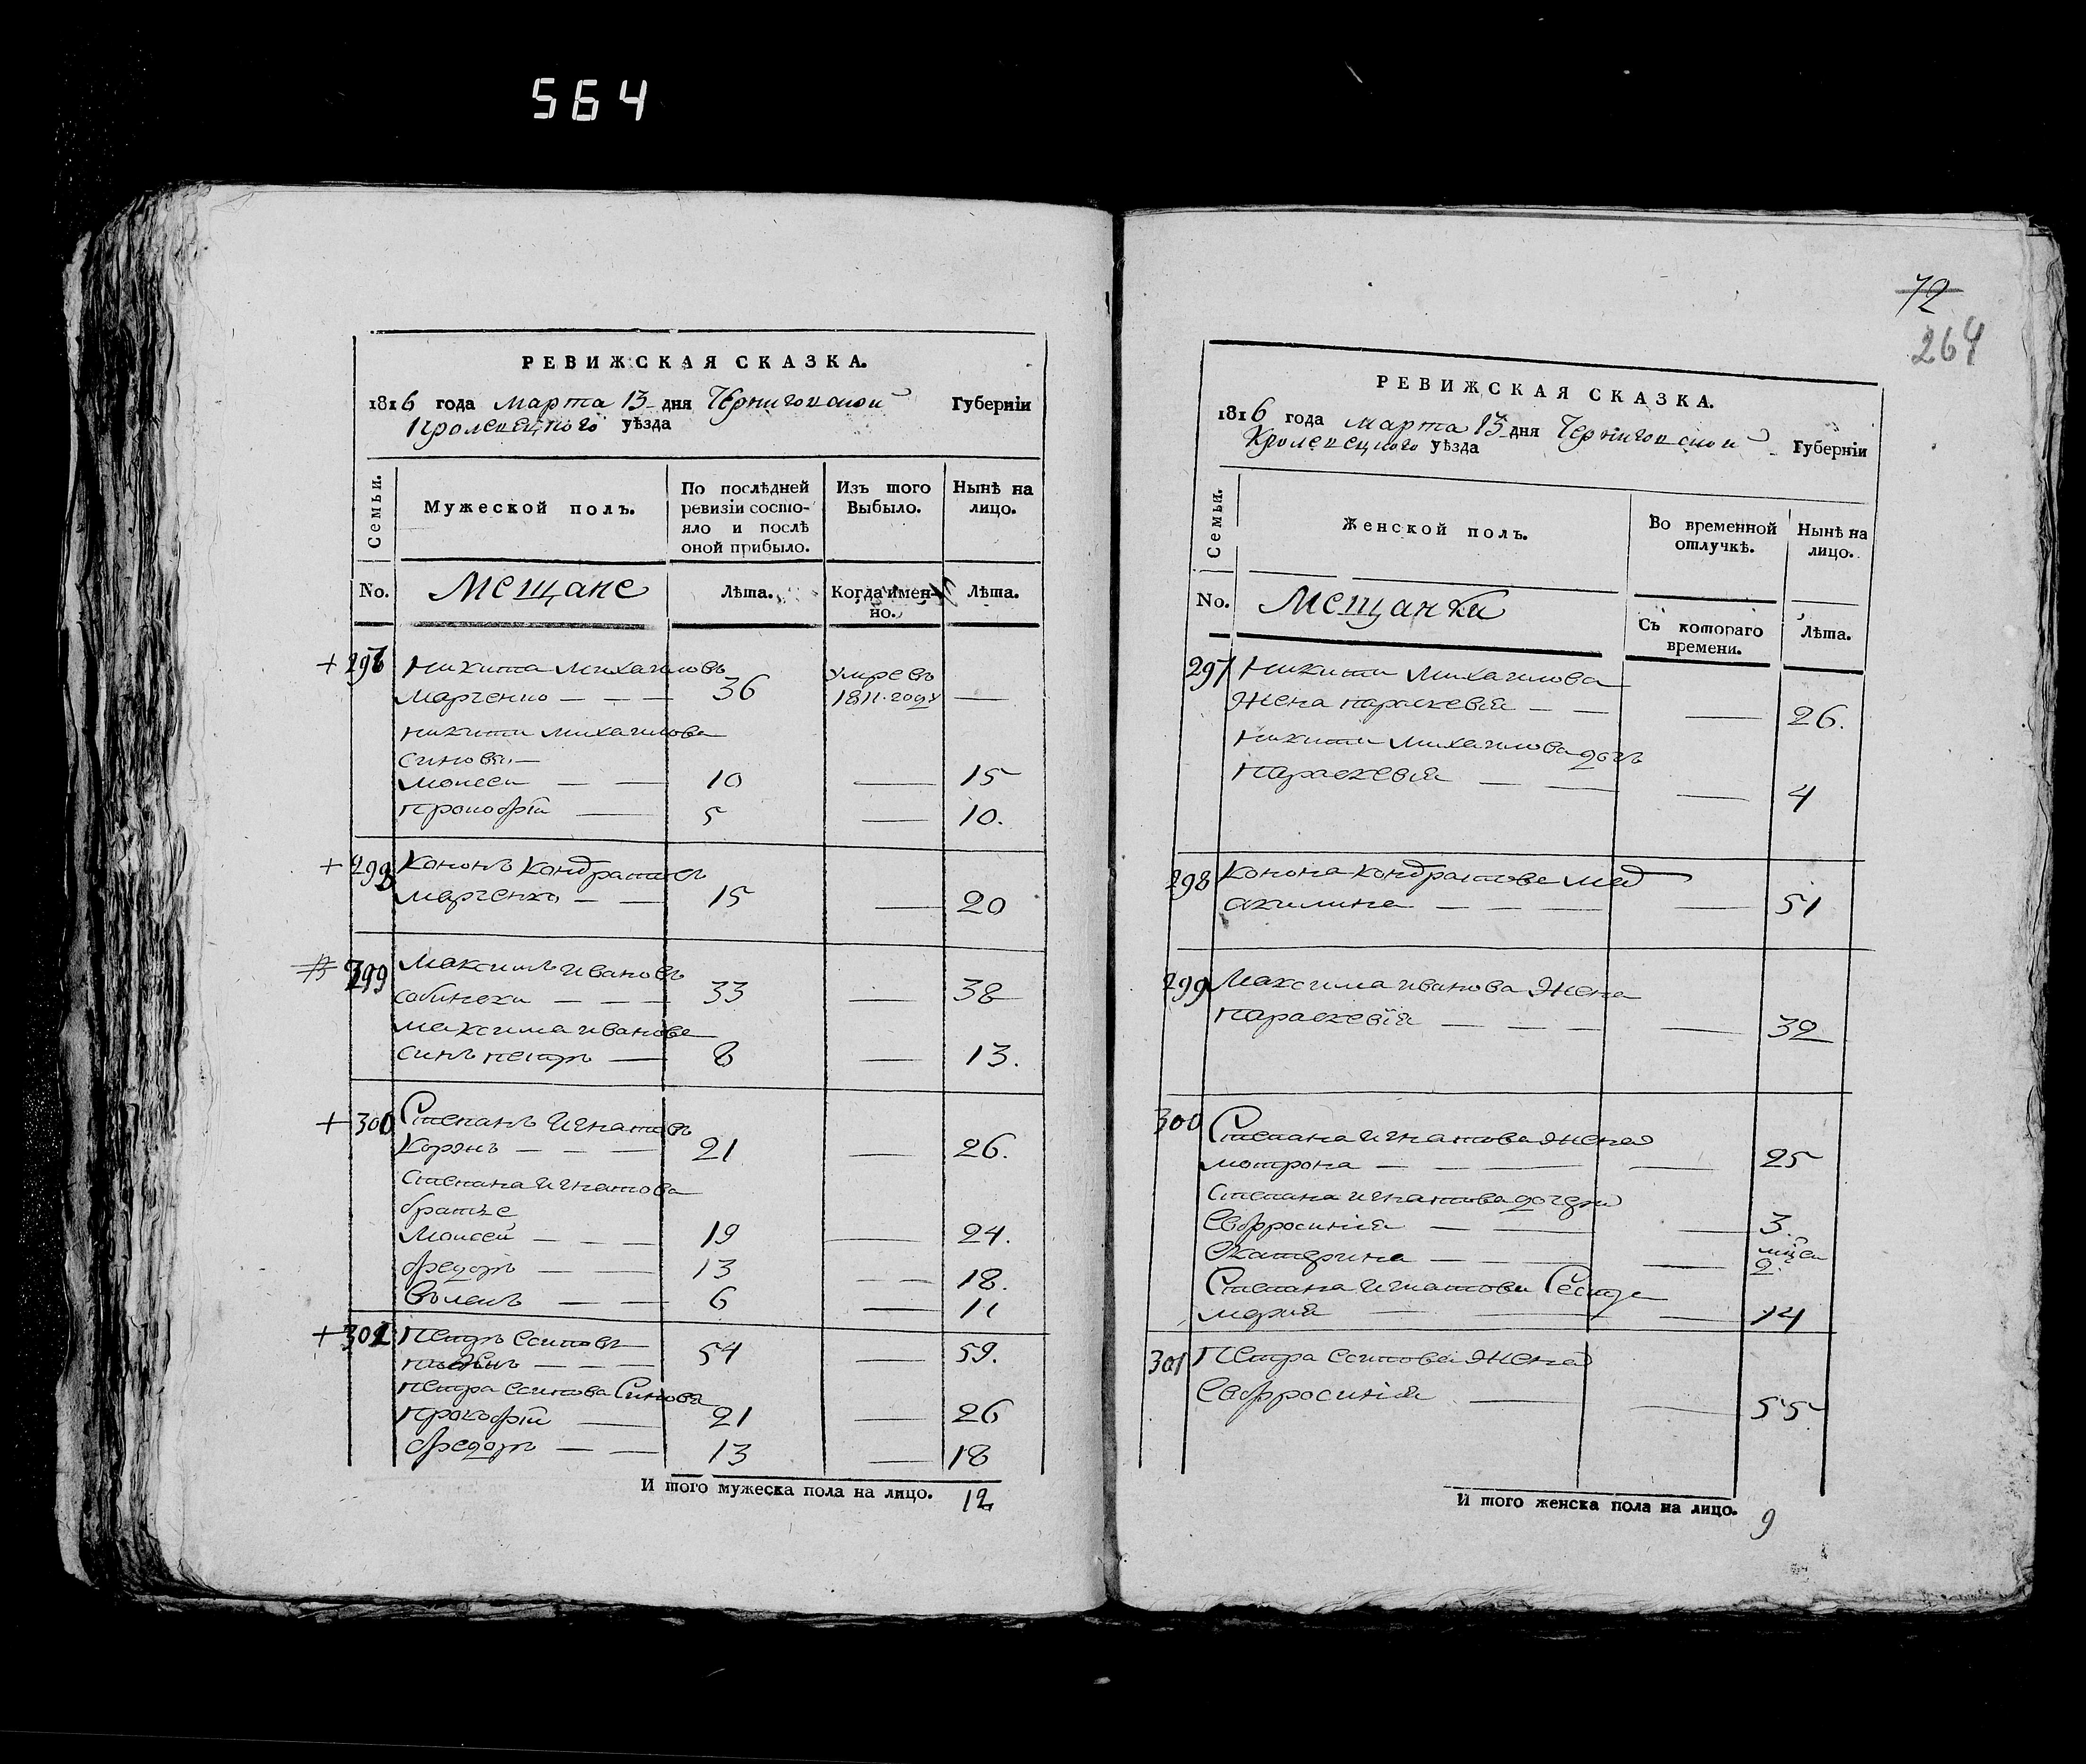 564
РЕВИЖСКАЯ СКАЗКА.
1816 года марта 13 дня Черниговской Губерніи
Кролевецкого уѣзда
Семьи.
Мужеской полъ.
По послѣдней ревизіи состояло и послѣ оной прибыло.
Изъ того Выбыло.
Нынѣ на лицо.
No. Мещане Лѣта. Когда имен-но. Лѣта.
+ 297 Никита Михайловъ умре въ
Марченко — — — 36 1811 году —
Никити Михайлова
синовя
Моисей — — 10 — 15
Прокофiй — 5 — 10.
+ 298 Кононъ Кондратовъ
Марченко — — 15 — 20
299 Максимъ Ивановъ
— — — 33 — 38
Максима Иванова
синъ Петръ — 8 — 13.
+ 300 Степанъ Игнатовъ
— — — 21 — 26.
Степана Игнатова
братье
Моисей — — — 19 — 24.
Федоръ — — 13 — 18.
— — 6 — 11
+ 301 Петръ Есиповъ
— — — 54 — 59.
Петра Есипова Синовя
Прокофiй — 21 — 26
Федоръ — — 13 — 18
И того мужеска пола на лицо. 12
72
264
РЕВИЖСКАЯ СКАЗКА.
1816 года марта 13 дня Черниговской Губерніи
Кролевецкого уѣзда
Семьи.
Женской полъ.
Во временной отлучкѣ.
Нынѣ на лицо.
No. Мещанки Съ котораго времени. Лѣта.
297 Никити Михайлова
Жена Параскевiя — — — 26.
Никити Михайлова дочь
Параскевiя — — — 4
298 Конона Кондратова мат
Акилина — — — — 51
299 Максима Иванова Жена
Параскевiя — — — — 32
300 Степана Игнатова жена
Мотрона — — — — 25
Степана Игнатова дочери
Евфросинiя — — — 3.
Екатерина — — — 2.
Степана Игнатова Сестра
Мария — — — 14
301 Петра Есипова Жена
Евфросинiя — — 55.
И того женска пола на лицо. 9